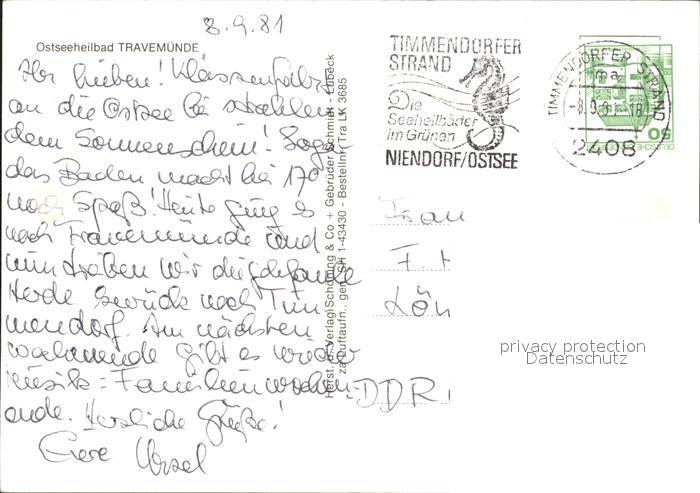 8.9.81
Ostseeheilbad TRAVEMÜNDE
Ihr Lieben! Klassenfahrt
an die Ostsee bei strahlen
dem Sonnenschein! Sogar
das Baden macht bei 17°
noch Spaß! Heute ging es
nach Travemünde und
nun traben wir die
Herde zurück nach Tim
mendorf. Am nächsten
wochenende gibt es wieder
Musik: Familienwochen-
ende. Herzliche Grüße!
Eure Ursel
Herst. u. Verlag Schöning & Co + Gebrüder Schmidt - Lübeck
SH 1-43430 - Bestellnr. Tra LK 3685
TIMMENDORFER
STRAND
Die
Seeheilbäder
im Grünen
NIENDORF/OSTSEE
TIMMENDORFER STRAND
ma
-8.9.81-18
2408
50
DEUTSCHE BUNDESPOST
Frau
F. H
Lön
DDR
privacy protection
Datenschutz